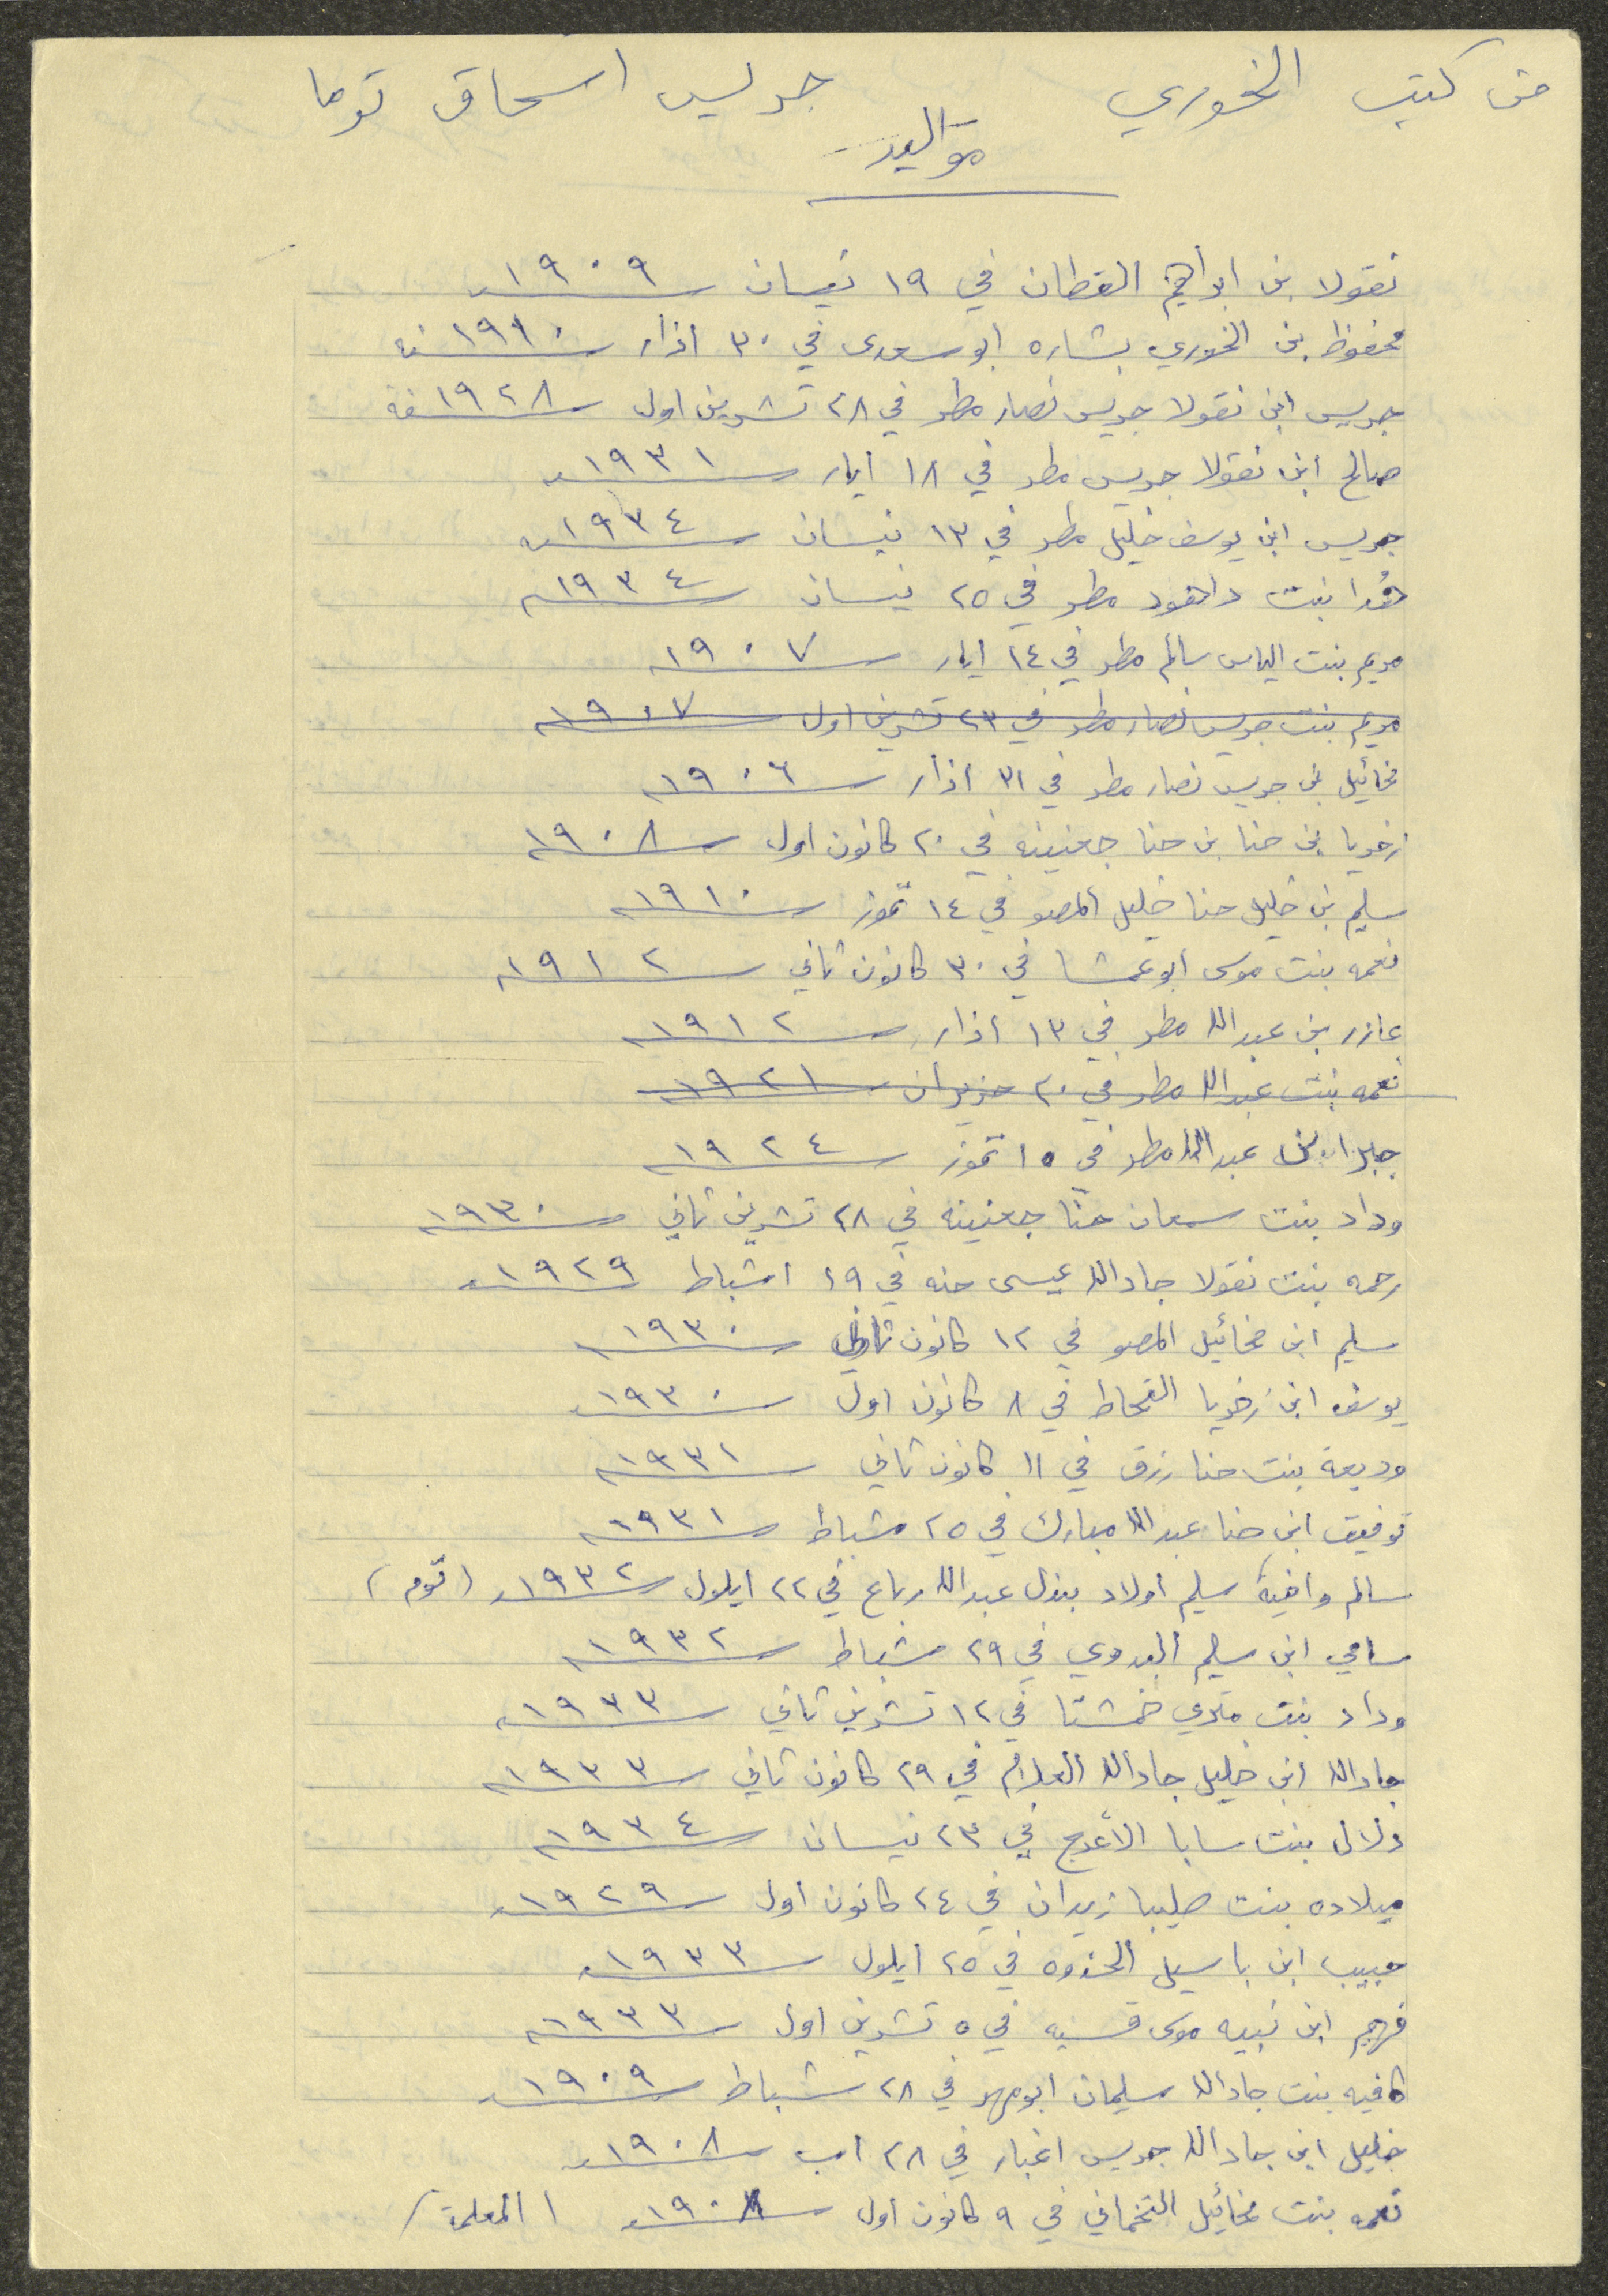 من كتب الخوري جريس اسحاق توما
مواليد
نقولا بن ابراهيم القطان في ١٩ نيسان سنة ١٩٠٩
محفوظ بن الخوري بشاره ابو سعدى في ٣٠ اذار سنة ١٩١٠
جريس ابن نقولا جريس نصار مطر في ٢٨ تشرين اول سنة ١٩٢٨
صالح ابن نقولا جريس مطر في ١٨ ايار سنة ١٩٣١
جريس ابن يوسف خليل مطر في ١٣ نيسان سنة ١٩٣٤
هُدا بنت داهود مطر في ٢٥ نيسان سنة ١٩٣٤
مريم بنت الياس سالم مطر في ١٤ ايار سنة ١٩٠٧
مريم بنت جريس نصار مطر في ٢٣ تشرين اول سنة ١٩٠٧
مخائيل بن جريس نصار مطر في ٣١ اذار سنة ١٩٠٦
زخريا بن حنا بن حنا جعنينه في ٢٠ كانون اول سنة ١٩٠٨
سليم بن خليل حنا خليل المصو في ١٤ تموز سنة ١٩١٠
نعمه بنت موسى ابوعمشا في ٣٠ كانون ثاني سنة ١٩١٢
عازر بن عبدالله مطر في ١٣ اذار سنة ١٩١٢
نعمه بنت عبدالله مطر في ٢٠ حزيران سنة ١٩٢١
جبرا ابن عبدالله مطر في ١٥ تموز سنة ١٩٢٤
وداد بنت سمعان حنّا جعنينه في ٢٨ تشرين ثاني سنة ١٩٣٠
رحمه بنت نقولا جادالله عيسى حنه في ١٩ اشباط ١٩٢٩
سليم ابن مخائيل المصو في ١٢ كانون سنة ١٩٣٠
يوسف ابن زخريا القحاط في ٨ كانون اول سنة ١٩٣٠
وديعة بنت حنا رزق في ١١ كانون ثاني سنة ١٩٣١
توفيق ابن حنا عبدالله مبارك في ٢٥ شباط سنة ١٩٣١
سالم واخيه سليم اولاد بندل عبدالله رباع في ٢٢ ايلول سنة ١٩٣٢ (توم)
سامي ابن سليم البدوي في ٢٩ شباط سنة ١٩٣٢
وداد بنت متري خمشتا في ١٢ تشرين ثاني سنة ١٩٣٣
جادالله ابن خليل جادالله العلام في ٢٩ كانون ثاني سنة ١٩٣٣
دلال بنت سابا الأعرج في ٢٣ نيسان سنة ١٩٣٤
ميلاده بنت صليبا زيدان في ٢٤ كانون اول سنة ١٩٢٩
حبيب ابن باسيل الحذوه في ٢٥ ايلول سنة ١٩٣٣
فهيم ابن نبيه موسى قسيه في ٥ تشرين اول سنة ١٩٣٣
كافيه بنت جادالله سليمان ابومهر في ٢٨ شباط سنة ١٩٠٩
خليل ابن جادالله جريس اغبار في ٢٨ اب سنة ١٩٠٨
نعمه بنت مخائيل التخماني في ٩ كانون اول سنة ١٩٠٨ (المعلمة)